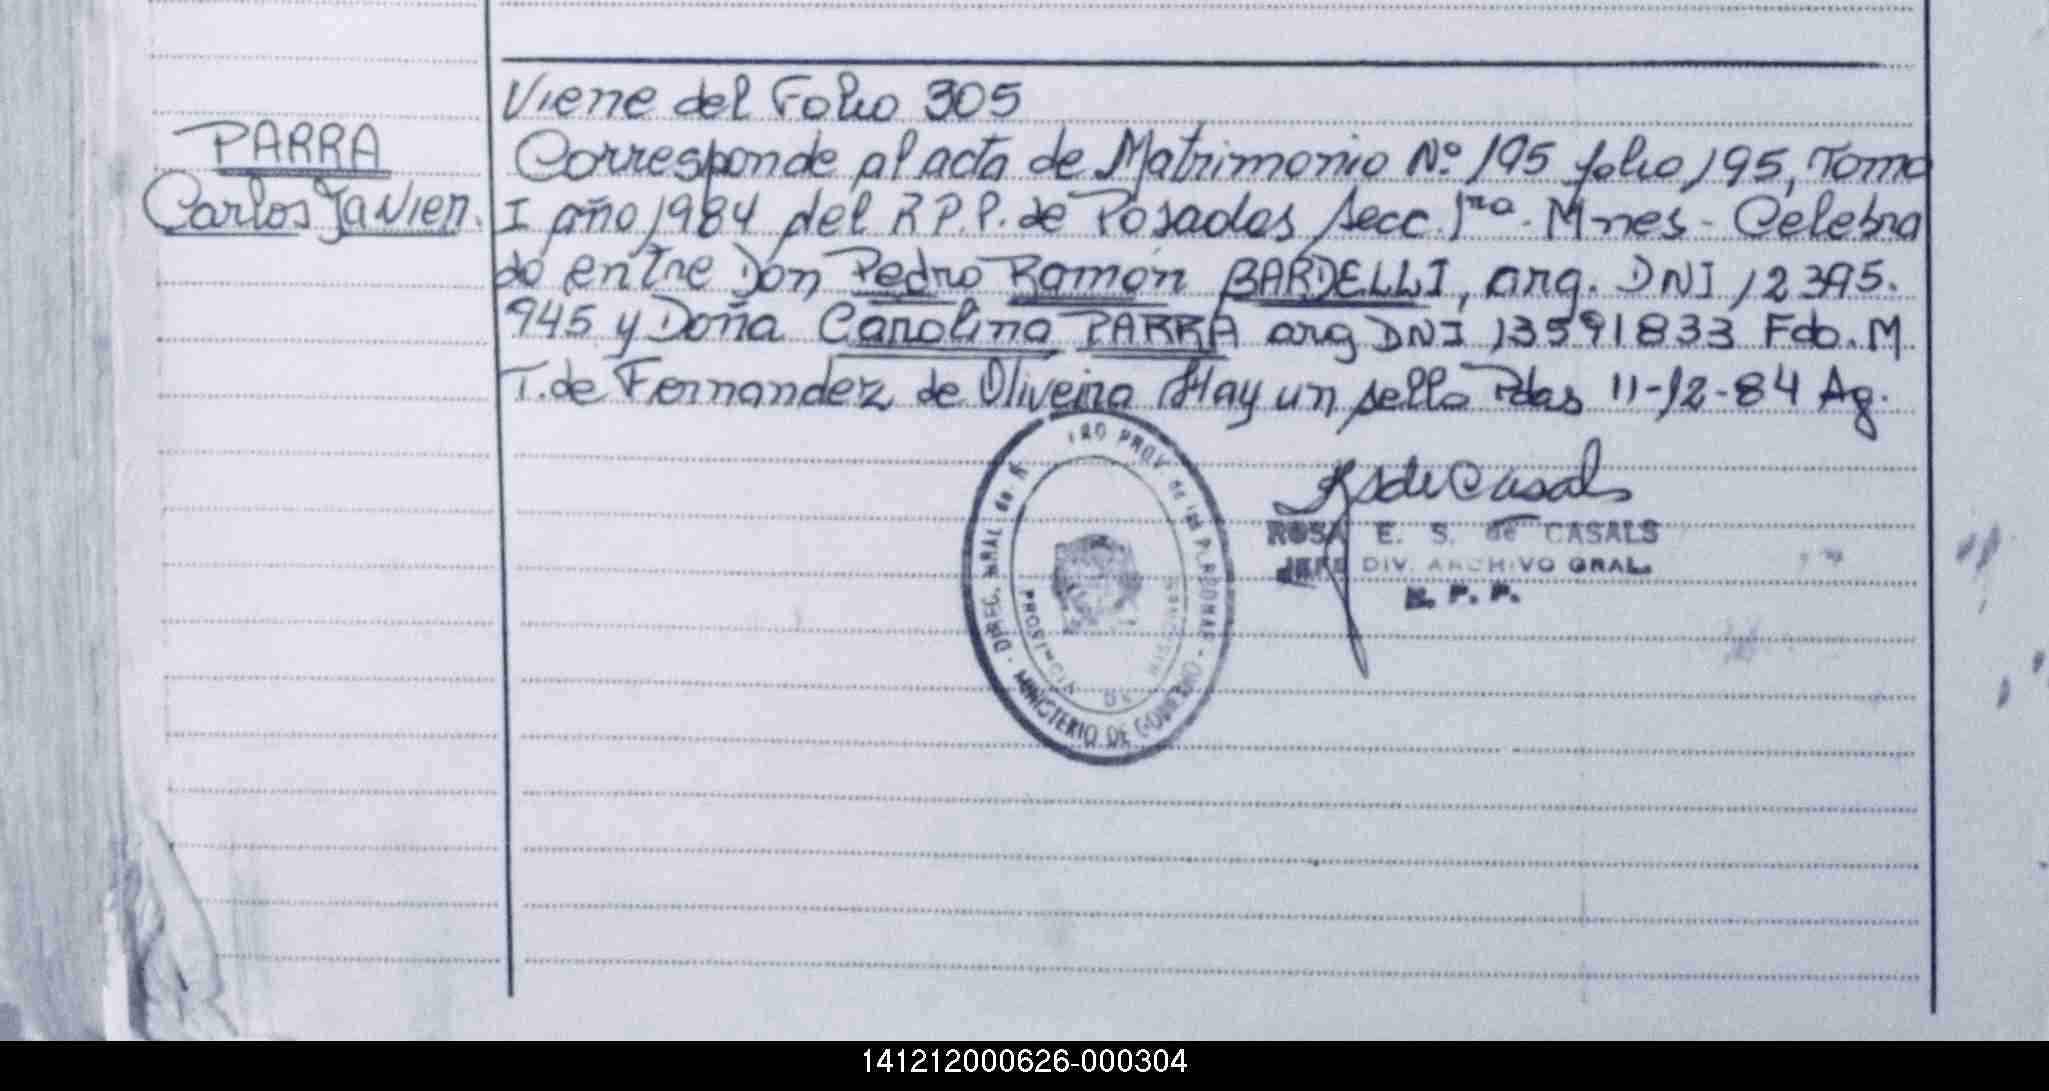 Viene del Folio 305
PARRA
Carlos Javier.
Corresponde al acta de Matrimonio Nº 195 folio 195, Tomo
I año 1984 del R.P.P. de Posadas Secc. 1ra. Mnes - Celebra
do entre Don Pedro Ramón BARDELLI, arg. DNI 12395.
945 y Doña Carolina PARRA arg DNI 13591833 Fdo. M.
T. de Fernandez de Oliveira Hay un sello Pdas 11-12-84 Ag.
DIREC. GRAL de PROV. de las PERSONAS - MINISTERIO DE GOBIERNO
PROVINCIA DE MISIONES
ROSA E. S. de CASALS
JEFE DIV. ARCHIVO GRAL.
R. P. P.
141212000626-000304